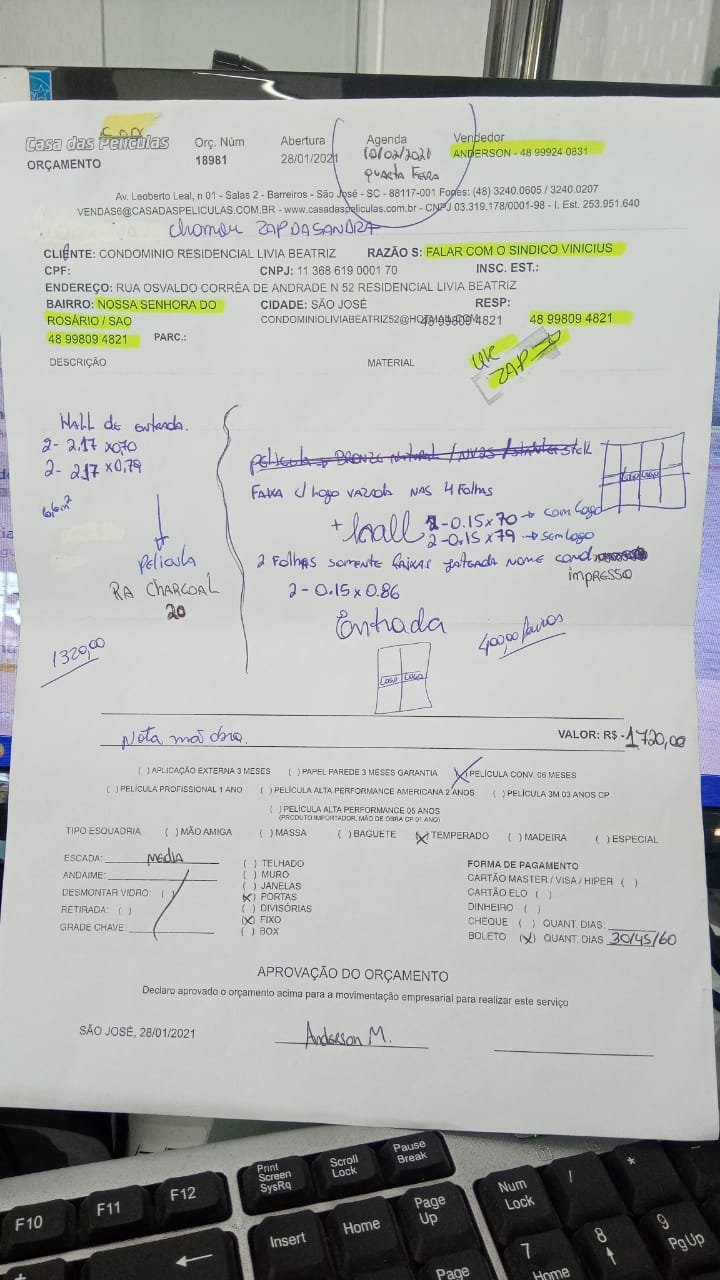 Casa das Películas
ORÇAMENTO
Orç. Núm
18981
Abertura
28/01/2021
Agenda
10/02/2021
QUARTA FEIRA
Vendedor
ANDERSON - 48 99924 0831
Av. Leoberto Leal, n 01 - Salas 2 - Barreiros - São José - SC - 88117-001 Fones: (48) 3240.0605 / 3240.0207
VENDAS6@CASADASPELICULAS.COM.BR - www.casadaspeliculas.com.br - CNPJ 03.319.178/0001-98 - I. Est. 253.951.640
chamar ZAP DA SANDRA
CLIENTE: CONDOMINIO RESIDENCIAL LIVIA BEATRIZ RAZÃO S: FALAR COM O SINDICO VINICIUS
CPF: CNPJ: 11 368 619 0001 70 INSC. EST.:
ENDEREÇO: RUA OSVALDO CORRÊA DE ANDRADE N 52 RESIDENCIAL LIVIA BEATRIZ
BAIRRO: NOSSA SENHORA DO CIDADE: SÃO JOSÉ RESP:
ROSÁRIO / SAO CONDOMINIOLIVIABEATRIZ52@HOTMAIL.COM 48 99809 4821 48 99809 4821
48 99809 4821 PARC.:
DESCRIÇÃO MATERIAL
ZAP
Hall de entrada.
2- 2.17 x0,70
2- 2.17 x0,79
6,6m²
película
RA CHARCOAL
20
1320,00
película → BRONZE NATURAL
FAIXA c/ logo VAZADA NAS 4 Folhas
LOGO LOGO
+ hall 2-0.15x70 → com logo
2-0.15x79 → sem logo
2 Folhas somente faixas jateada nome cond
IMPRESSO
2-0.15x0.86
Entrada
400,00
LOGO LOGO
Nota mão obra. VALOR: R$ -1720,00
( ) APLICAÇÃO EXTERNA 3 MESES ( ) PAPEL PAREDE 3 MESES GARANTIA (X) PELÍCULA CONV. 06 MESES
( ) PELÍCULA PROFISSIONAL 1 ANO ( ) PELÍCULA ALTA PERFORMANCE AMERICANA 2 ANOS ( ) PELÍCULA 3M 03 ANOS CP
( ) PELÍCULA ALTA PERFORMANCE 05 ANOS
(PRODUTO IMPORTADOR, MÃO DE OBRA CP 01 ANO)
TIPO ESQUADRIA ( ) MÃO AMIGA ( ) MASSA ( ) BAGUETE (X) TEMPERADO ( ) MADEIRA ( ) ESPECIAL
ESCADA: MEDIA
ANDAIME:
DESMONTAR VIDRO: ( )
RETIRADA: ( )
GRADE CHAVE:
( ) TELHADO
( ) MURO
( ) JANELAS
(X) PORTAS
( ) DIVISÓRIAS
(X) FIXO
( ) BOX
FORMA DE PAGAMENTO
CARTÃO MASTER / VISA / HIPER ( )
CARTÃO ELO ( )
DINHEIRO ( )
CHEQUE ( ) QUANT. DIAS:
BOLETO (X) QUANT. DIAS 30/45/60
APROVAÇÃO DO ORÇAMENTO
Declaro aprovado o orçamento acima para a movimentação empresarial para realizar este serviço
SÃO JOSÉ, 28/01/2021
Anderson M.
Print Screen SysRq
Scroll Lock
Pause Break
F10
F11
F12
Insert
Home
Page Up
Num Lock
/
*
7 Home
8
9 PgUp
Page